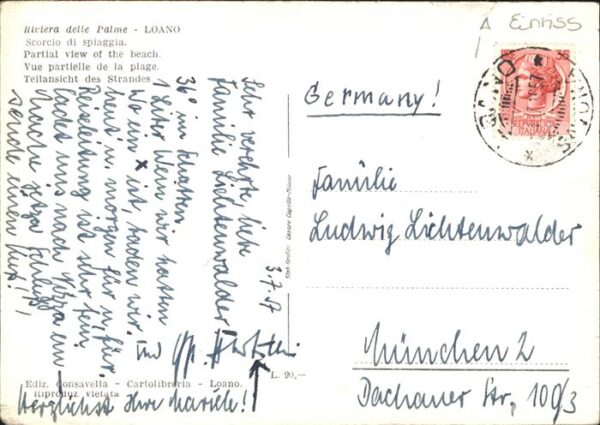 Riviera delle Palme - LOANO
Scorcio di spiaggia.
Partial view of the beach.
Vue partielle de la plage.
Teilansicht des Strandes.
3.7.57
Sehr verehrte, liebe
Familie Lichtenwalder!
36° im Schatten
1 Liter Wein wir hatten
Wo ein x ist, baden wir.
heut u. morgen für u. für.
Reiseleitung ist sehr fein
ladet uns nach Nizza ein
Nach Nizza
sende einen Kuß!
und
Herzlichst Ihre Mariele!
Ediz. Consavella - Cartolibreria - Loano.
Riproduz. vietata
L. 20,—
Stab. Grafico Cesare Capello - Milano
Einriss
LOANO
SAVONA
35
REPUBBLICA
ITALIANA
Germany!
Familie
Ludwig Lichtenwalder
München 2
Dachauer Str. 109/3